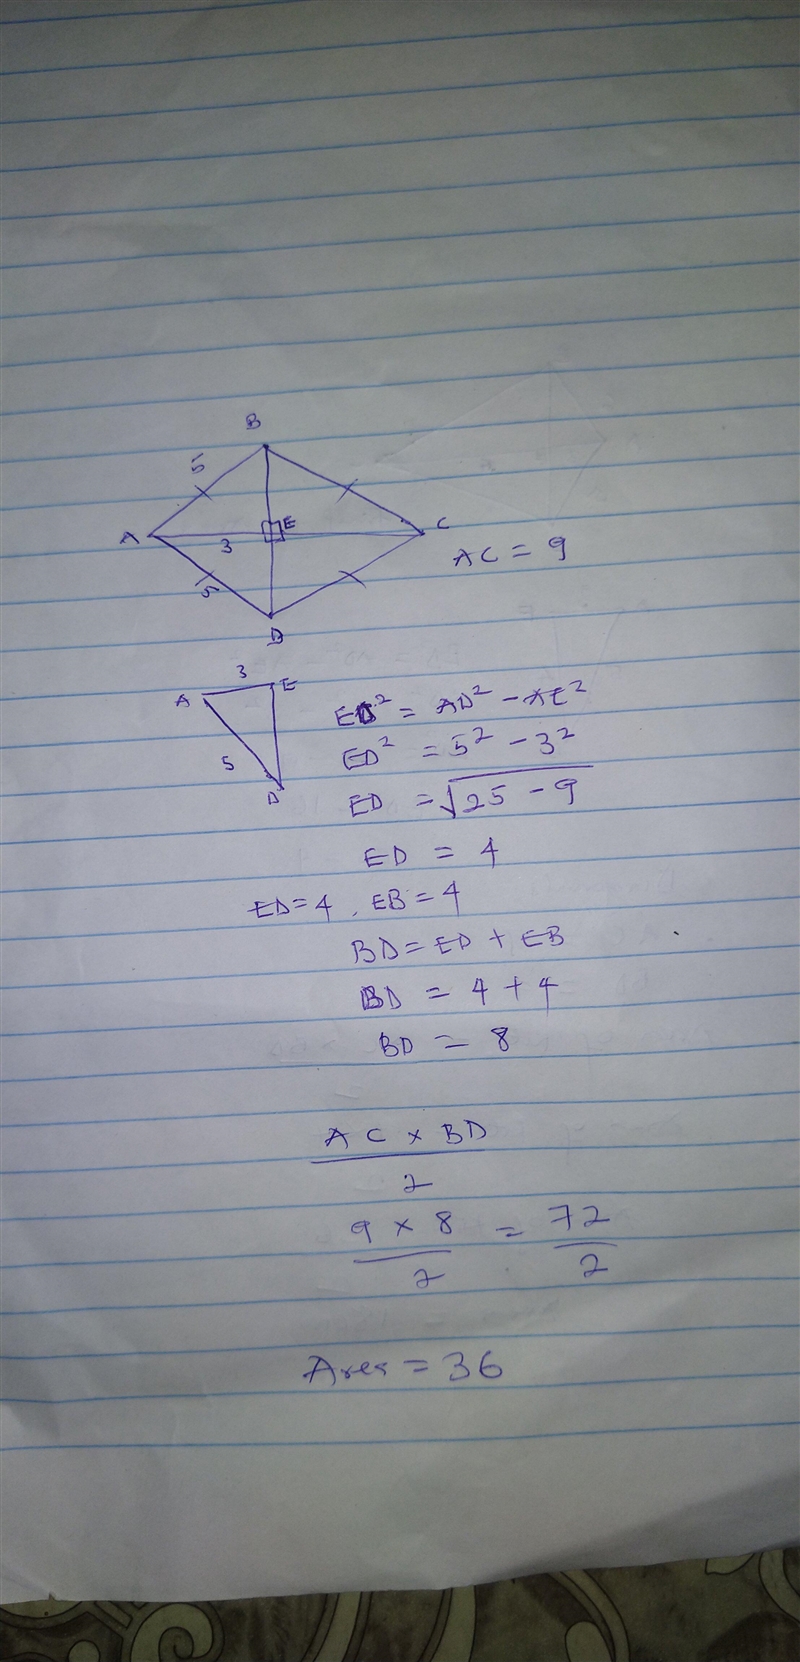 B
5
A
E
C
3
AC = 9
5
D
3
A
E
ED² = AD² - AE²
5
ED² = 5² - 3²
D
ED = √25 - 9
ED = 4
ED = 4, EB = 4
BD = ED + EB
BD = 4 + 4
BD = 8
AC × BD
2
9 × 8 = 72
2 2
Area = 36